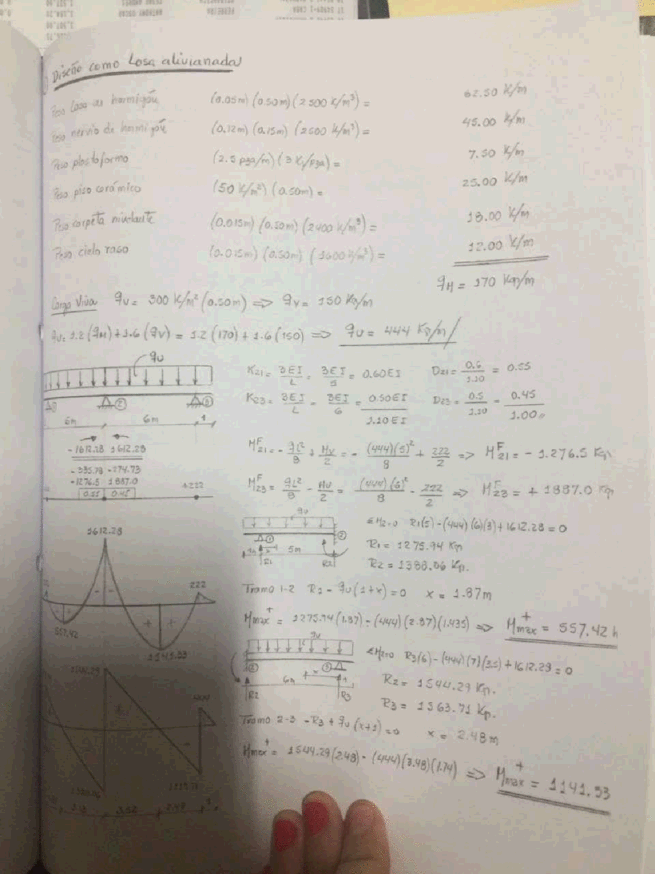 Diseño como Losa alivianada
Peso Losa de hormigón (0.05m) (0.50m) (2500 K/m³) = 62.50 K/m
Peso nervio de hormigón (0.12m) (0.15m) (2500 K/m³) = 45.00 K/m
Peso plastoformo (2.5 pza/m) (3 K/pza) = 7.50 K/m
Peso piso cerámico (50 K/m²) (0.50m) = 25.00 K/m
Peso carpeta nivelante (0.015m) (0.50m) (2400 K/m³) = 18.00 K/m
Peso cielo raso (0.015m) (0.50m) (1600 K/m³) = 12.00 K/m
qM = 170 Kg/m
Carga Viva qv = 300 K/m² (0.50m) => qv = 150 Kg/m
qu = 1.2 (qM) + 1.6 (qv) = 1.2 (170) + 1.6 (150) => qu = 444 Kg/m
qu
K21 = 3EI/L = 3EI/5 = 0.60EI D21 = 0.6/1.10 = 0.55
K23 = 3EI/L = 3EI/6 = 0.50EI D23 = 0.5/1.10 = 0.45
1.10EI 1.00
6m 6m 1
-1612.28 1612.28
-335.78 -274.73
-1276.5 1887.0
0.55 0.45 +222
M21 F = - qL²/8 + Mv/2 = - (444)(5)²/8 + 222/2 => M21 F = -1.276.5 Kg
M23 F = qL²/8 - Mv/2 = (444)(6)²/8 - 222/2 => M23 F = +1887.0 Kg
qu
5m
R1 R2
R1(5) - (444)(6)(3) + 1612.28 = 0
R1 = 1275.94 Kg
R2 = 1388.06 Kg.
1612.28
222
557.42
Tramo 1-2 R1 - qu (1+x) = 0 x = 1.87m
Mmax + = 1275.94 (1.87) - (444)(2.87)(1.435) => Mmax + = 557.42
qu
6m
R2 R3
R3(6) - (444)(7)(3.5) + 1612.28 = 0
R2 = 1544.29 Kg.
R3 = 1563.71 Kg.
Tramo 2-3 -R3 + qu (x+1) = 0 x = 2.48m
Mmax + = 1544.29 (2.48) - (444)(3.48)(1.74) => Mmax + = 1141.93